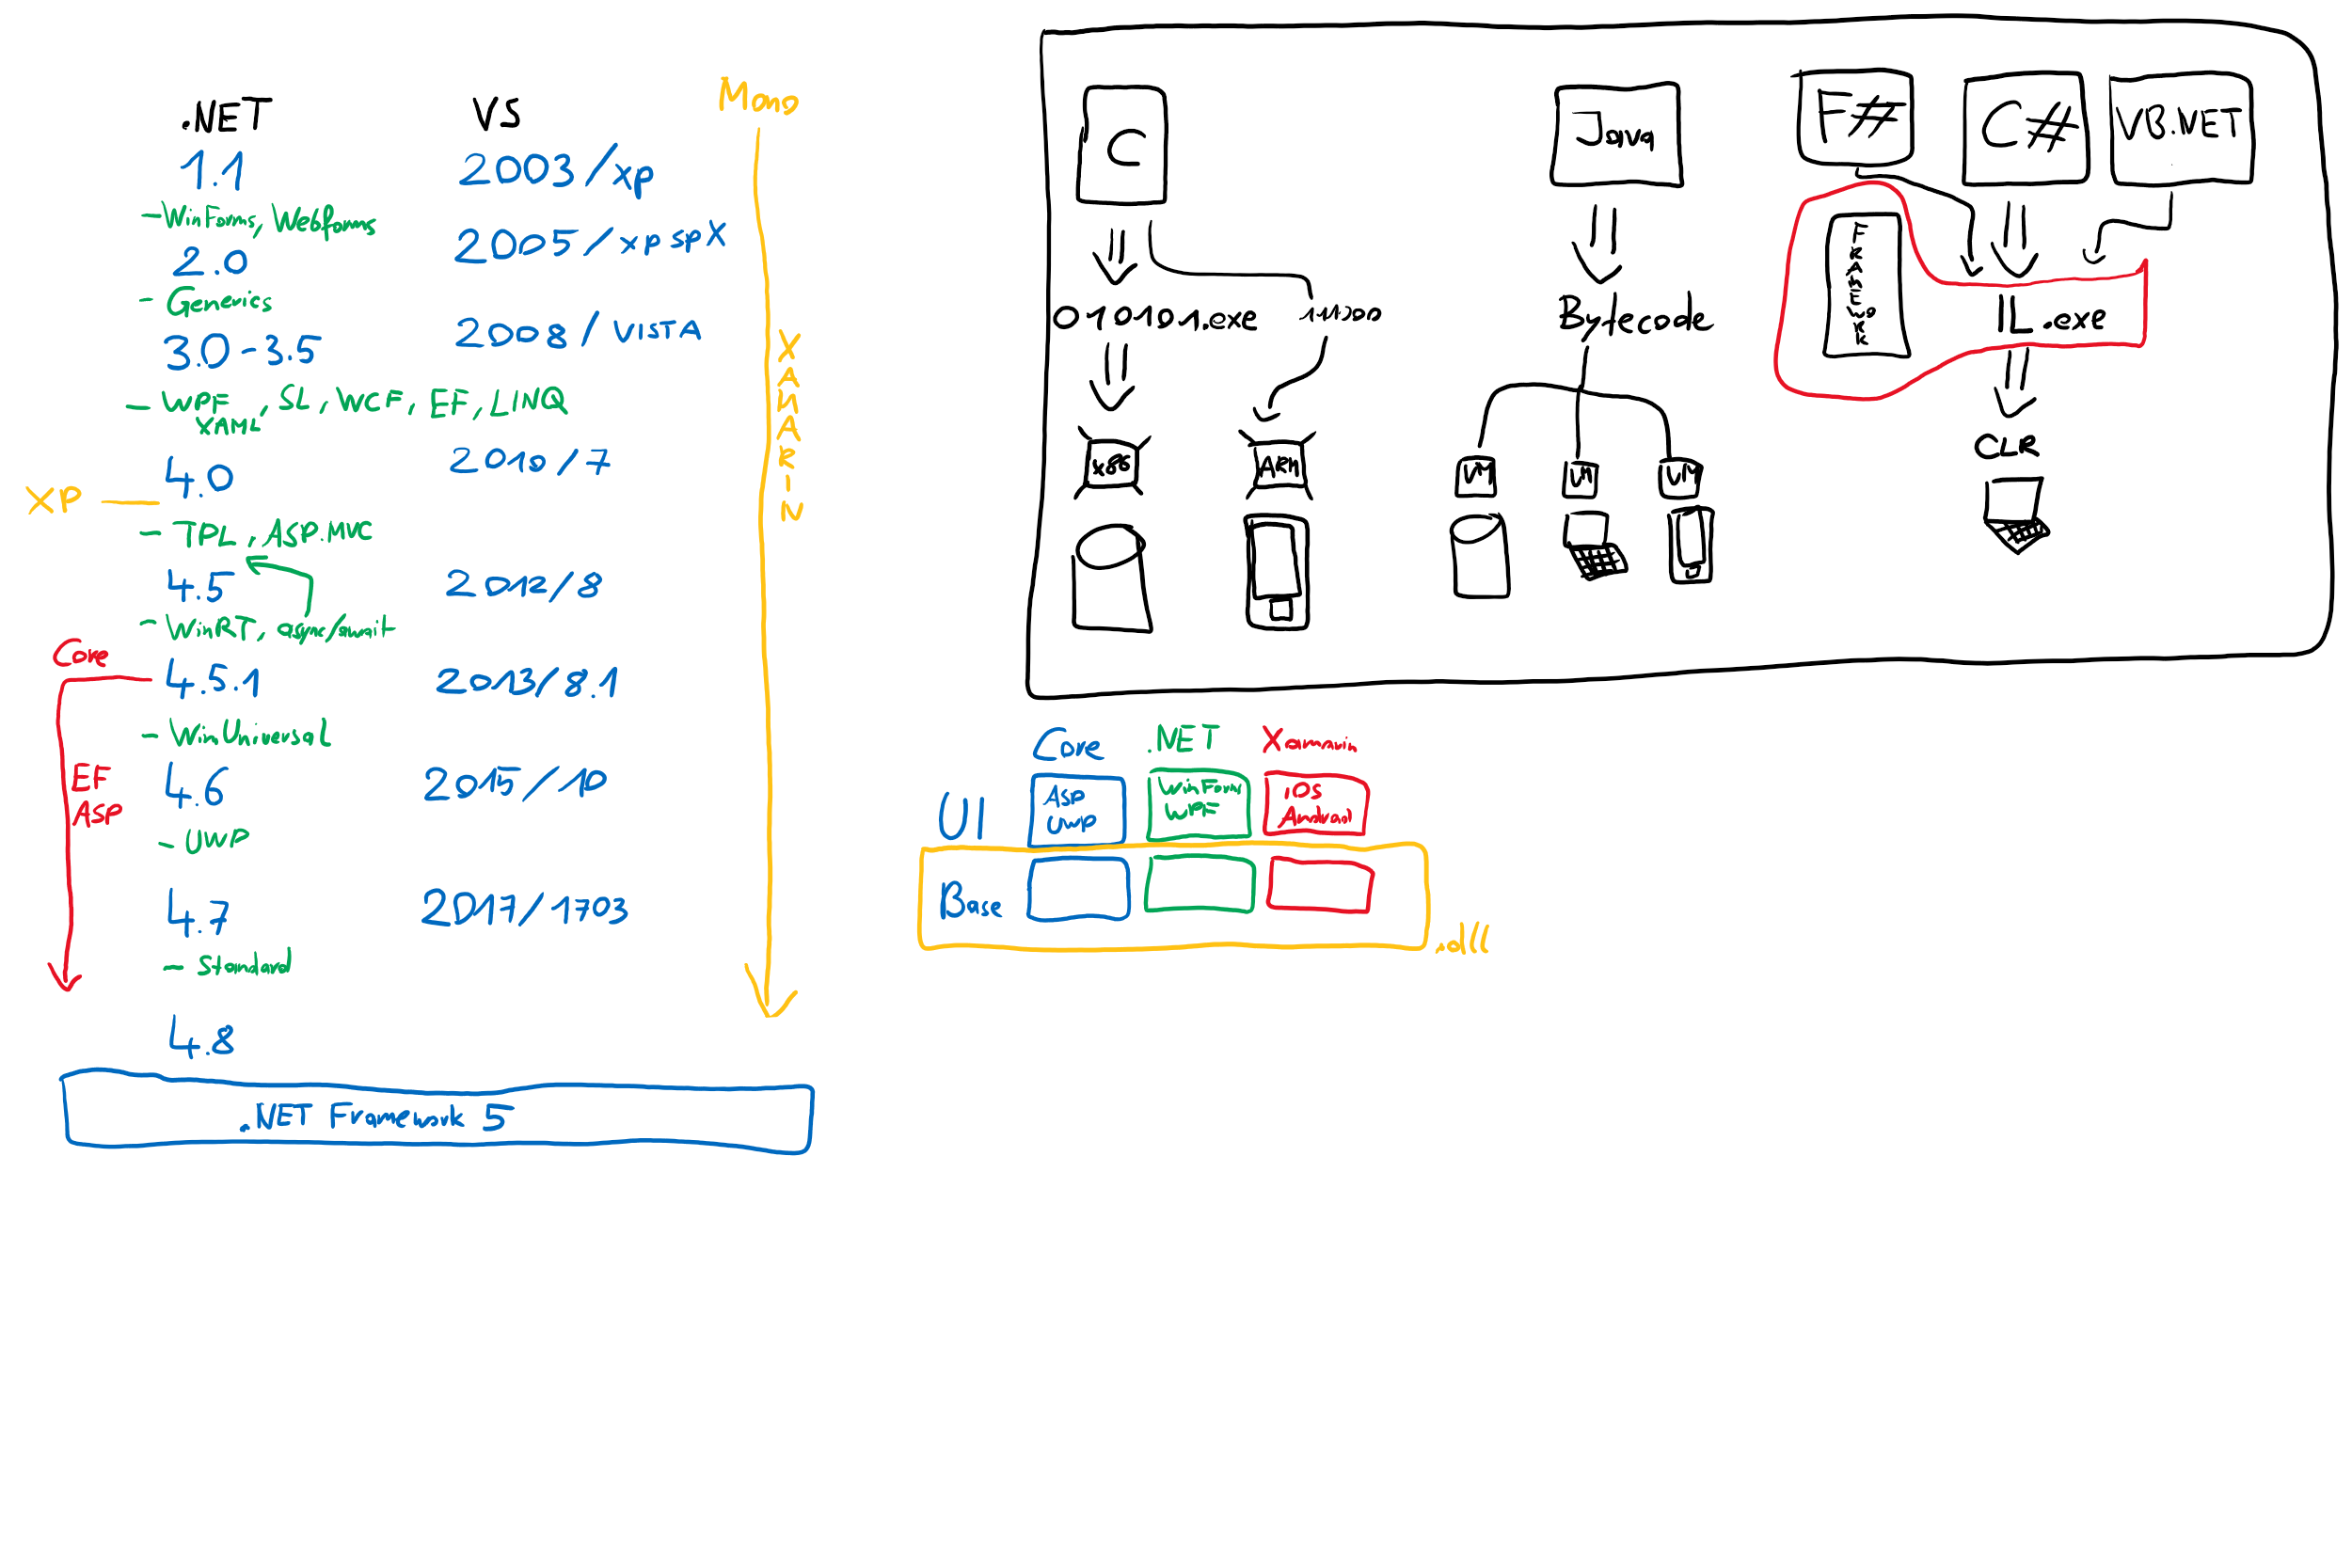 .NET VS
Mono
1.1 2003/xp
- WinForms, Webforms
2.0 2005/xp spX
- Generics
3.0-3.5 2008/VISTA
- WPF, SL, WCF, EF, LINQ
XAML
4.0 2010/7
XP
- TPL, ASP.MVC
4.5 2012/8
- WinRT, async/await
Core
4.5.1 2013/8.1
- WinUniversal
EF
ASP
4.6 2015/10
- UWP
4.7 2017/1703
- Standard
4.8
.NET Framework 5
XAMARIN
C
010101.exe
x86
ARM
Java
Bytecode
VM VM VM
F# C# VB.NET
IL.exe
CLR
Core .NET Xamarin
UI
ASP
UWP
WinForms
WPF
iOS
Android
Base
.dll